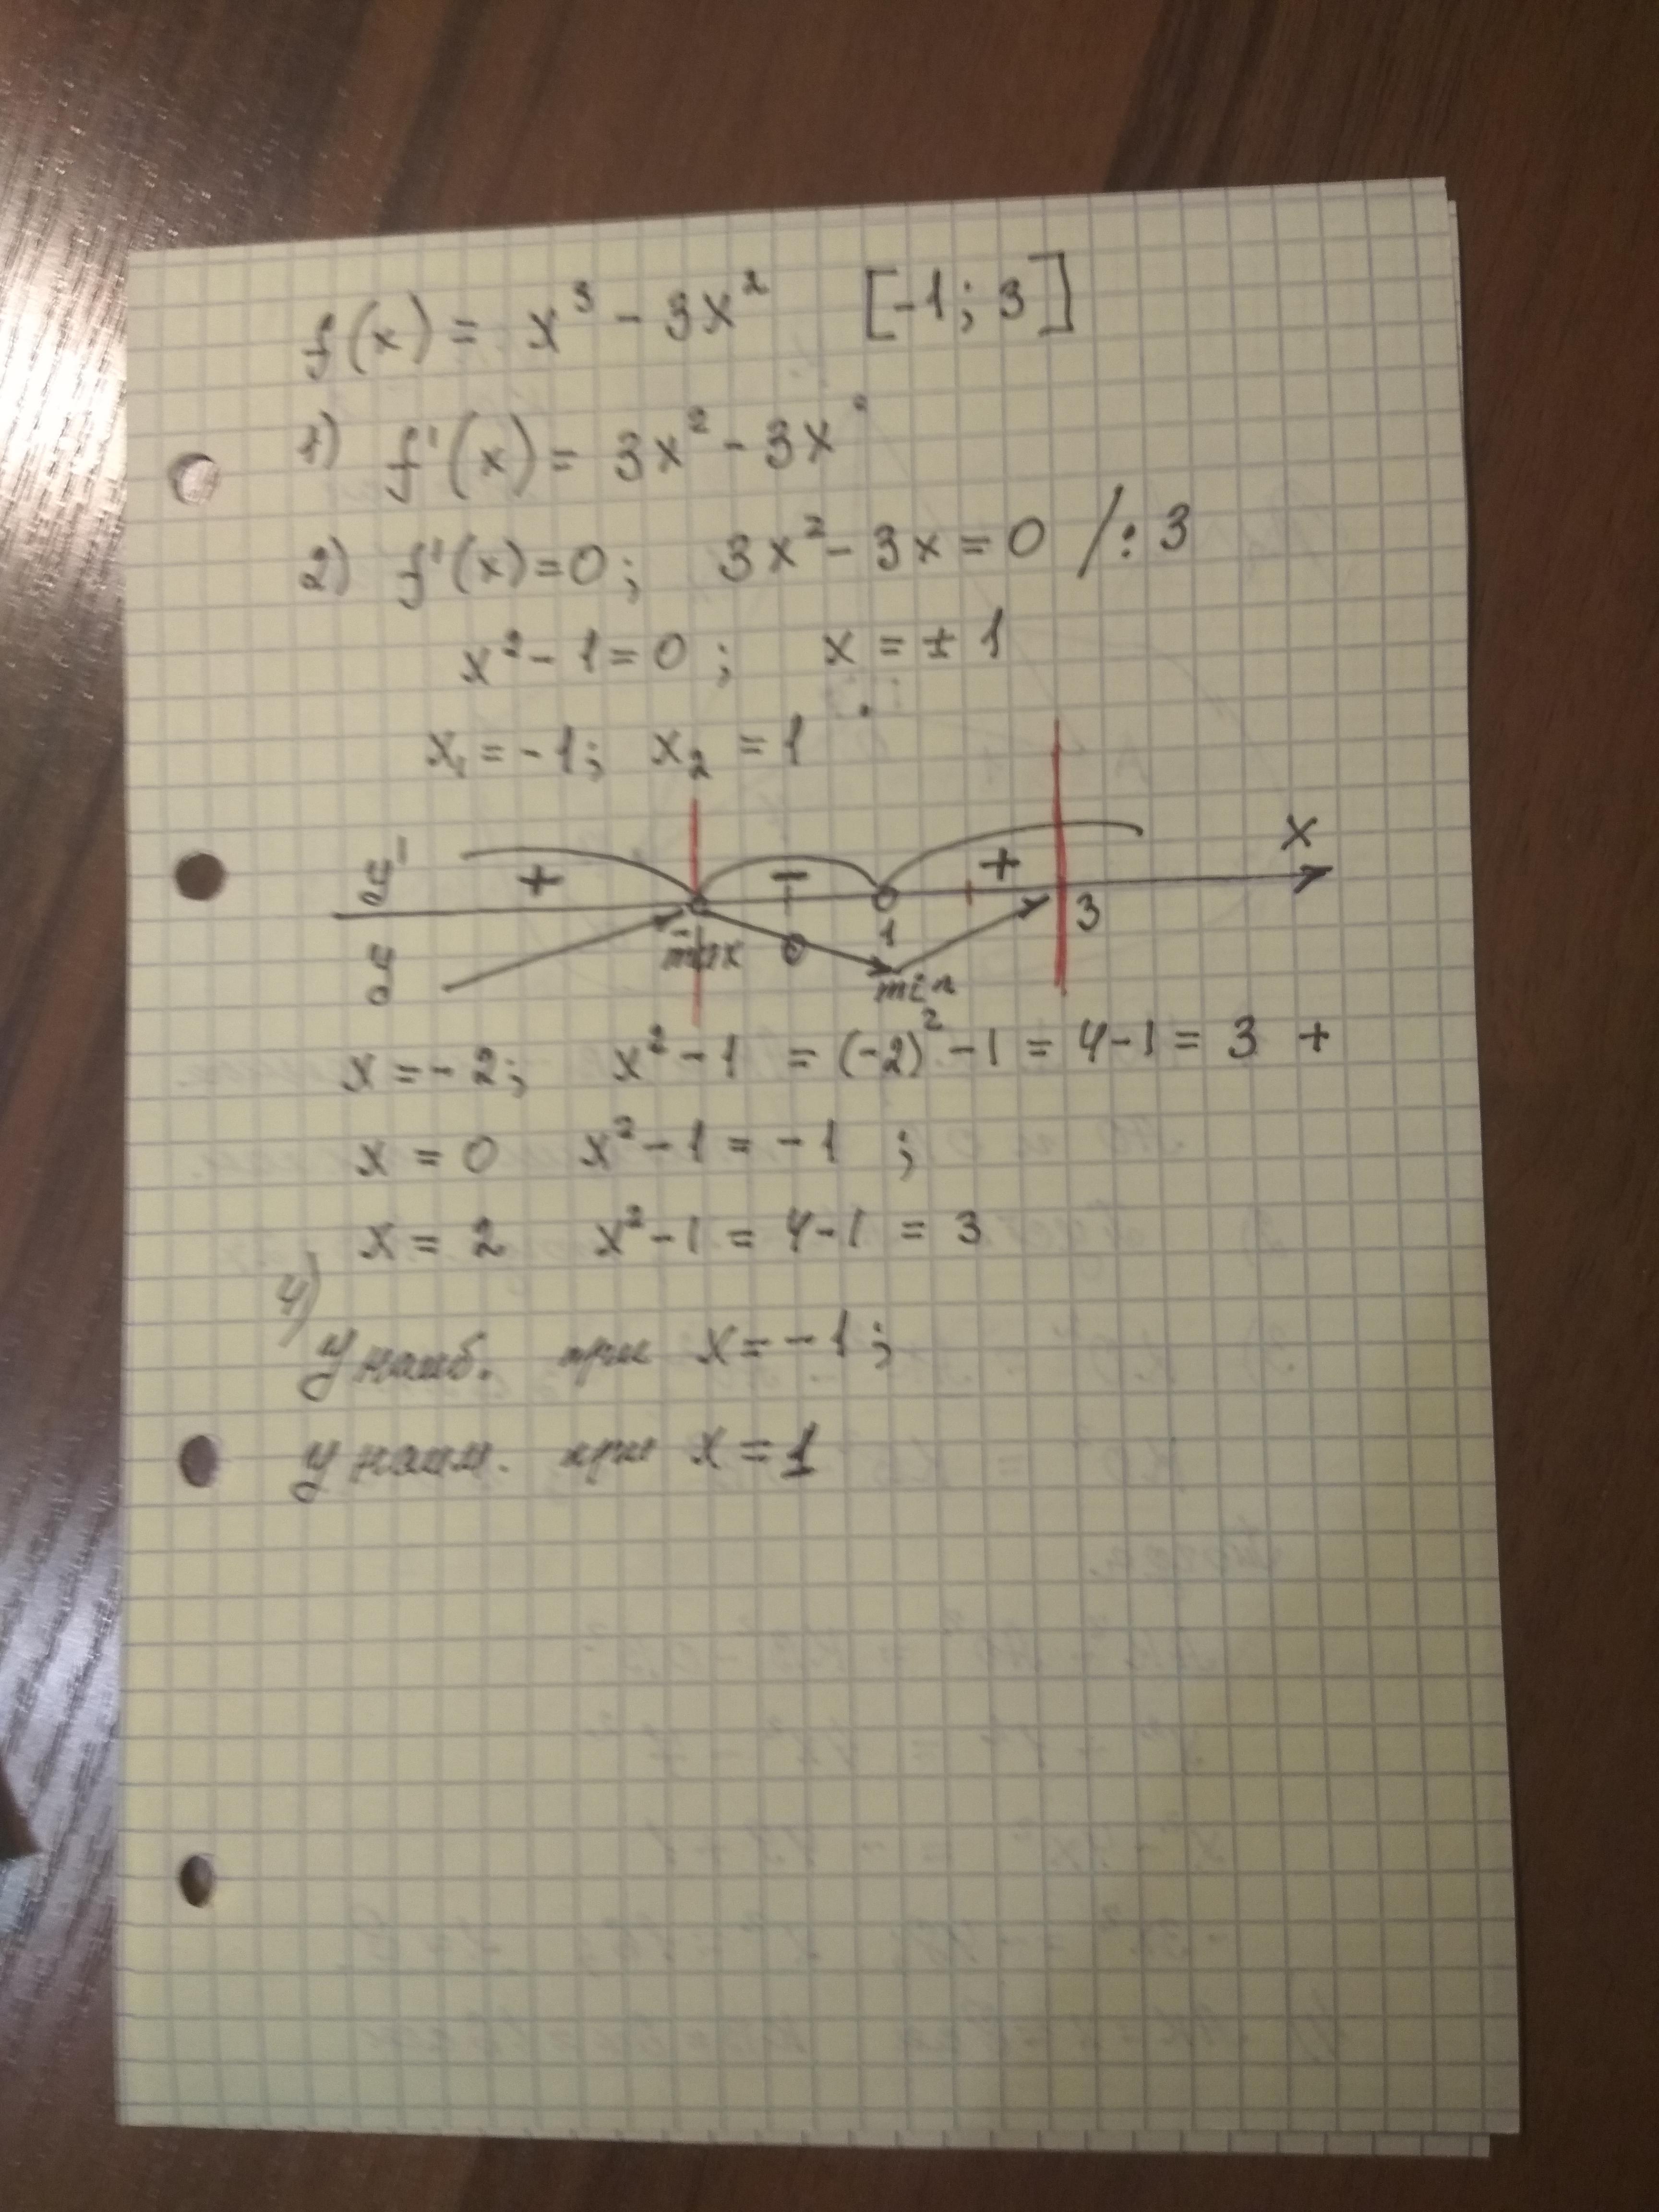 f(x) = x³ - 3x² [-1; 3]
1) f'(x) = 3x² - 3x
2) f'(x)=0; 3x² - 3x = 0 /:3
x² - 1 = 0; x = ± 1
x₁ = -1; x₂ = 1
+ - + x
-1 1 3
max 0 min
x = -2; x² - 1 = (-2)² - 1 = 4-1 = 3 +
x = 0 x² - 1 = -1 ;
x = 2 x² - 1 = 4-1 = 3
4)
y наиб. при x = -1;
y наим. при x = 1